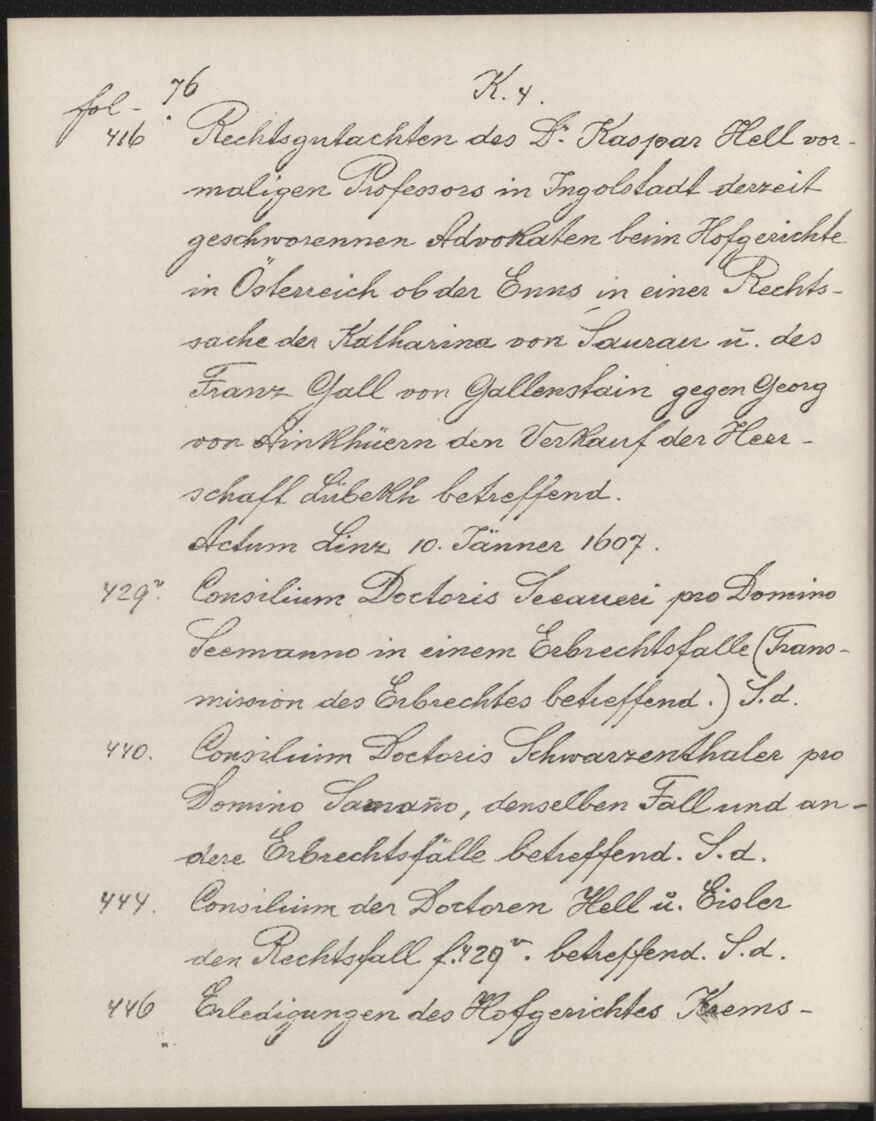 76 K. 4.
fol.
416 Rechtsgutachten des Dr. Kaspar Hell vor-
maligen Professors in Ingolstadt derzeit
geschworennen Advokaten beim Hofgerichte
in Österreich ob der Enns in einer Rechts-
sache der Katharina von Saurau ū. des
Franz Gall von Gallenstain gegen Georg
von Ainkhüern den Verkauf der Herr-
schaft Lübekh betreffend.
Actum Linz 10. Jänner 1607.
429v. Consilium Doctoris Seeaueri pro Domino
Seemanno in einem Erbrechtsfalle (Trans-
mission des Erbrechtes betreffend.) S.d.
440. Consilium Doctoris Schwarzenthaler pro
Domino Samaño, denselben Fall und an-
dere Erbrechtsfälle betreffend. S.d.
444. Consilium der Doctoren Hell ū. Eisler
den Rechtsfall f. 429v. betreffend. S.d.
446 Erledigungen des Hofgerichtes Krems-